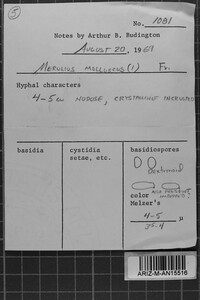 5
No. 1081
Notes by Arthur R. Budington
August 20, 1969
Merulius molluscus (!) Fr.
Hyphal characters
4-5 u nodose, crystalline incrusted
basidia
cystidia
setae, etc.
basidiospores
color
Melzer's
4-5 µ
ARIZ-M-AN15516